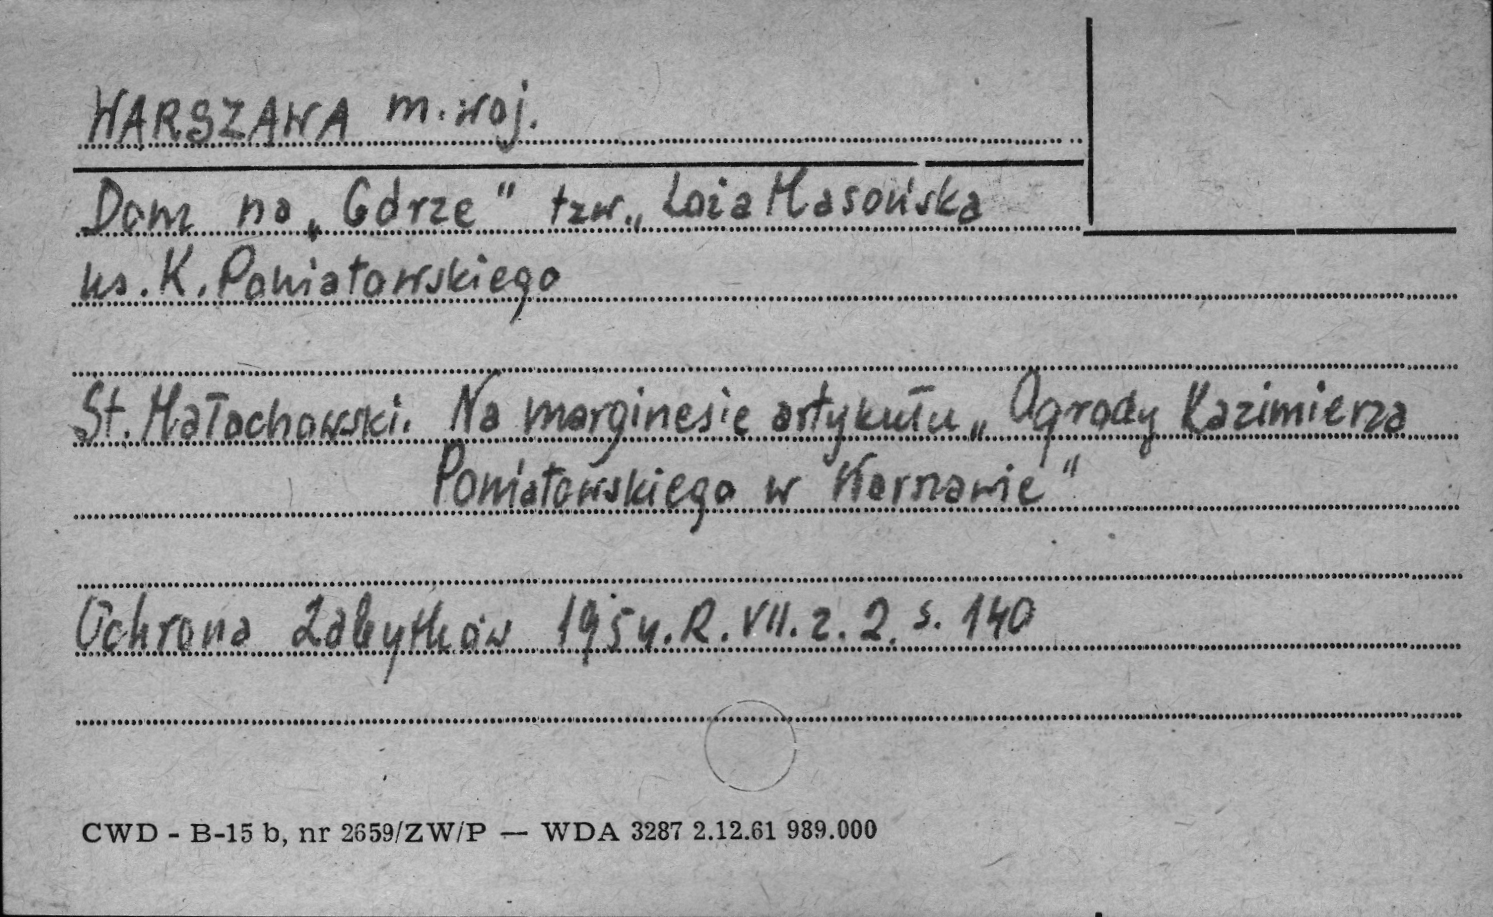 WARSZAWA m. woj.
Dom na „Górze" tzw. „Loża Masońska
ks. K. Poniatowskiego
St. Małachowski. Na marginesie artykułu „Ogrody Kazimierza
Poniatowskiego w Warszawie"
Ochrona Zabytków 1954. R. VII. z. 2. s. 140
CWD - B-15 b, nr 2659/ZW/P — WDA 3287 2.12.61 989.000